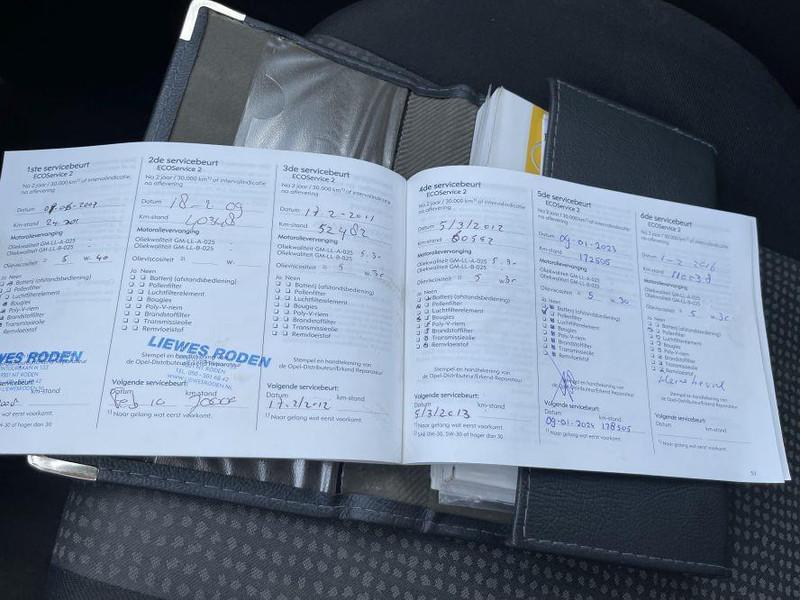 1ste servicebeurt
ECOService 2
Na 2 jaar / 30.000 km¹⁾ of intervalindicatie
na aflevering
Datum
Km-stand
Motorolieverversing
Oliekwaliteit GM-LL-A-025
Oliekwaliteit GM-LL-B-025
Olieviscositeit 5 w-40
Ja Neen
Batterij (afstandsbediening)
Pollenfilter
Luchtfilterelement
Bougies
Poly-V-riem
Brandstoffilter
Transmissieolie
Remvloeistof
LIEWES RODEN
km-stand
¹⁾ Naar gelang wat eerst voorkomt.
2de servicebeurt
ECOService 2
Na 2 jaar / 30.000 km¹⁾ of intervalindicatie
na aflevering
Datum 18-2 09
Km-stand 40348
Motorolieverversing
Oliekwaliteit GM-LL-A-025
Oliekwaliteit GM-LL-B-025
Olieviscositeit w-
Ja Neen
Batterij (afstandsbediening)
Pollenfilter
Luchtfilterelement
Bougies
Poly-V-riem
Brandstoffilter
Transmissieolie
Remvloeistof
LIEWES RODEN
Volgende servicebeurt:
Datum km-stand
¹⁾ Naar gelang wat eerst voorkomt.
3de servicebeurt
ECOService 2
Na 2 jaar / 30.000 km¹⁾ of intervalindicatie
na aflevering
Datum 17-2-2011
Km-stand 52482
Motorolieverversing
Oliekwaliteit GM-LL-A-025
Oliekwaliteit GM-LL-B-025
Olieviscositeit 5 w3
Ja Neen
Batterij (afstandsbediening)
Pollenfilter
Luchtfilterelement
Bougies
Poly-V-riem
Brandstoffilter
Transmissieolie
Remvloeistof
Stempel en handtekening van
de Opel-Distributeur/Erkend Reparateur
Volgende servicebeurt:
Datum km-stand
17-2/2012
¹⁾ Naar gelang wat eerst voorkomt.
4de servicebeurt
ECOService 2
Na 2 jaar / 30.000 km¹⁾ of intervalindicatie
na aflevering
Datum 5/3/2012
Km-stand 60552
Motorolieverversing
Oliekwaliteit GM-LL-A-025
Oliekwaliteit GM-LL-B-025
Olieviscositeit 5 w3
Ja Neen
Batterij (afstandsbediening)
Pollenfilter
Luchtfilterelement
Bougies
Poly-V-riem
Brandstoffilter
Transmissieolie
Remvloeistof
Stempel en handtekening van
de Opel-Distributeur/Erkend Reparateur
Volgende servicebeurt:
Datum km-stand
5/3/2013
¹⁾ Naar gelang wat eerst voorkomt.
5de servicebeurt
ECOService 2
Na 2 jaar / 30.000 km¹⁾ of intervalindicatie
na aflevering
Datum 09-01-2023
Km-stand 172505
Motorolieverversing
Oliekwaliteit GM-LL-A-025
Oliekwaliteit GM-LL-B-025
Olieviscositeit 5 w30
Ja Neen
Batterij (afstandsbediening)
Pollenfilter
Luchtfilterelement
Bougies
Poly-V-riem
Brandstoffilter
Transmissieolie
Remvloeistof
Stempel en handtekening van
de Opel-Distributeur/Erkend Reparateur
Volgende servicebeurt:
Datum km-stand
09-01-2024 178505
¹⁾ Naar gelang wat eerst voorkomt.
6de servicebeurt
ECOService 2
Na 2 jaar / 30.000 km¹⁾ of intervalindicatie
na aflevering
Datum 1-2-2016
Km-stand
Motorolieverversing
Oliekwaliteit GM-LL-A-025
Oliekwaliteit GM-LL-B-025
Olieviscositeit 5
Ja Neen
Batterij (afstandsbediening)
Pollenfilter
Luchtfilterelement
Bougies
Poly-V-riem
Brandstoffilter
Transmissieolie
Remvloeistof
Stempel en handtekening van
de Opel-Distributeur/Erkend Reparateur
Volgende servicebeurt:
Datum km-stand
¹⁾ Naar gelang wat eerst voorkomt.